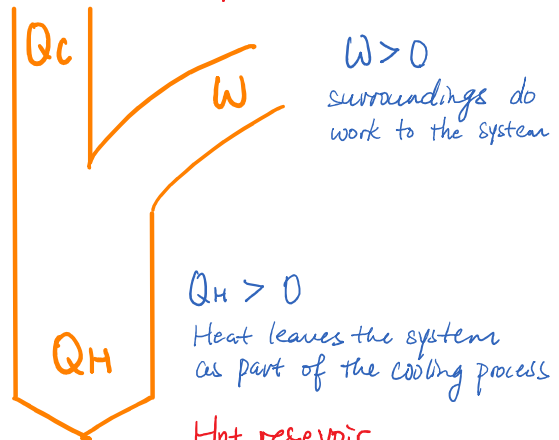 Qc
W > 0
W
surroundings do
work to the system
QH > 0
Heat leaves the system
as part of the cooling process
QH
Hot reservoir